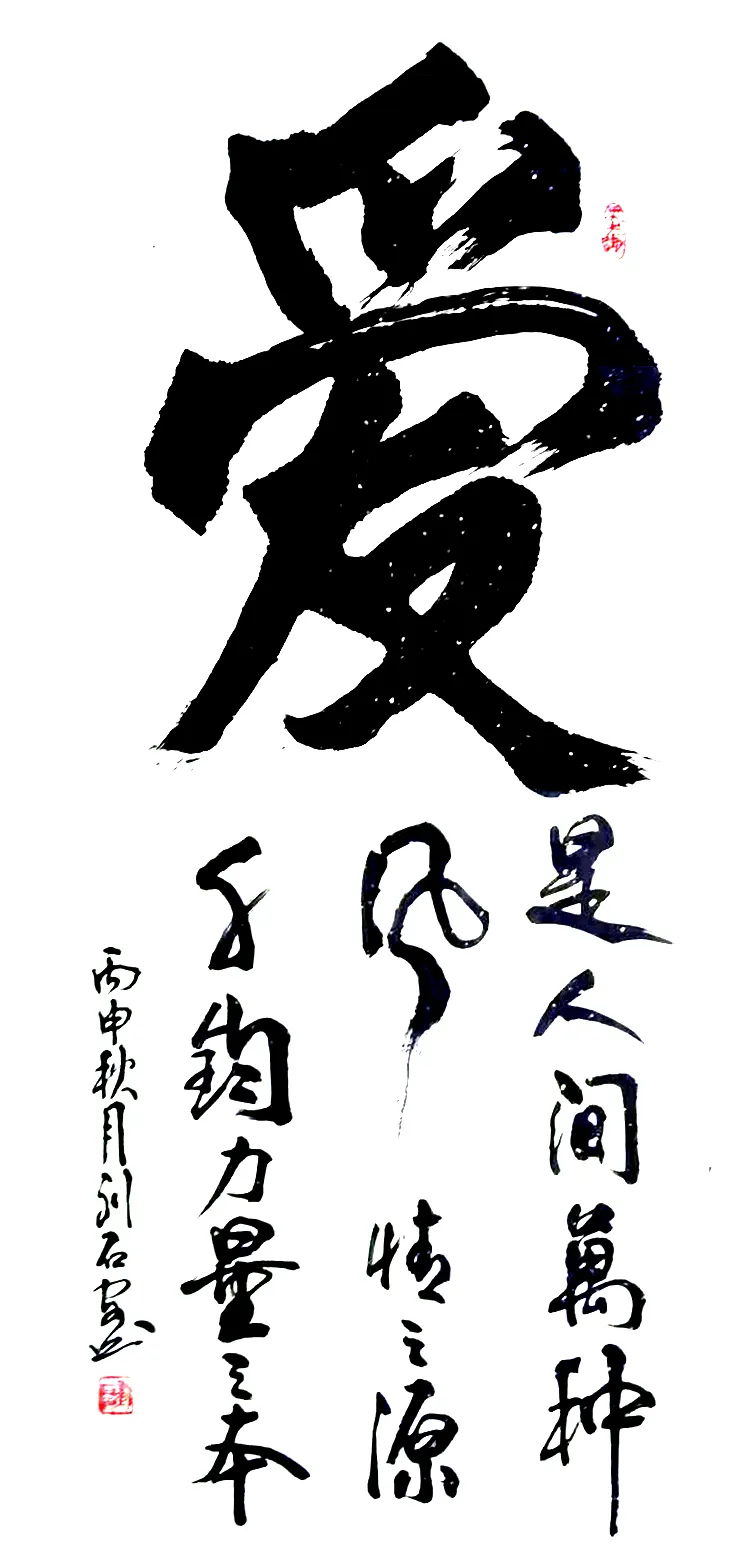 爱
是人间萬种
风情之源
千钧力量之本
丙申秋月刘石